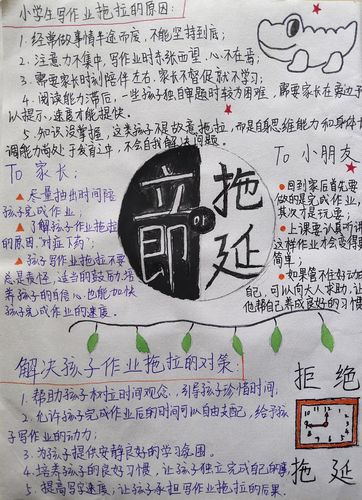 小学生写作业拖拉的原因:
1. 经常做事情半途而废,不能坚持到底;
2. 注意力不集中,写作业时东张西望、心不在焉;
3. 需要家长时刻陪伴左右,家长不督促就不学习;
4. 阅读能力滞后,一些孩子独自解题时较为困难,需要家长在旁边予
以提示,速度才能提快。
5. 知识没掌握,这类孩子不是故意拖拉,而是自身思维能力和身体协
调能力尚处于发育之中,不会自我解决问题。
To 家长;
尽量抽出时间陪
孩子完成作业;
了解孩子作业拖拉
的原因,对症下药;
孩子写作业拖拉不要
总是责怪,适当的鼓励,培
养孩子的自信心,也能加快
孩子完成作业的速度。
立即
or
拖延
To 小朋友:
回到家后首先要
做的是完成作业,
其次才是玩耍;
上课要认真听讲,
这样作业才会变得
简单;
如果管不住好动
自己,可以向大人求助,让
他帮自己养成良好的习惯
解决孩子作业拖拉的对策:
1. 帮助孩子树立时间观念,引导孩子珍惜时间;
2. 允许孩子完成作业后的时间可以自由支配,给予孩
子写作业的动力;
3. 为孩子提供安静良好的学习氛围。
4. 培养孩子的良好习惯,让孩子独立完成自己的事
5. 提高写字速度,让孩子承担写作业拖拉的后果。
拒绝
拖延